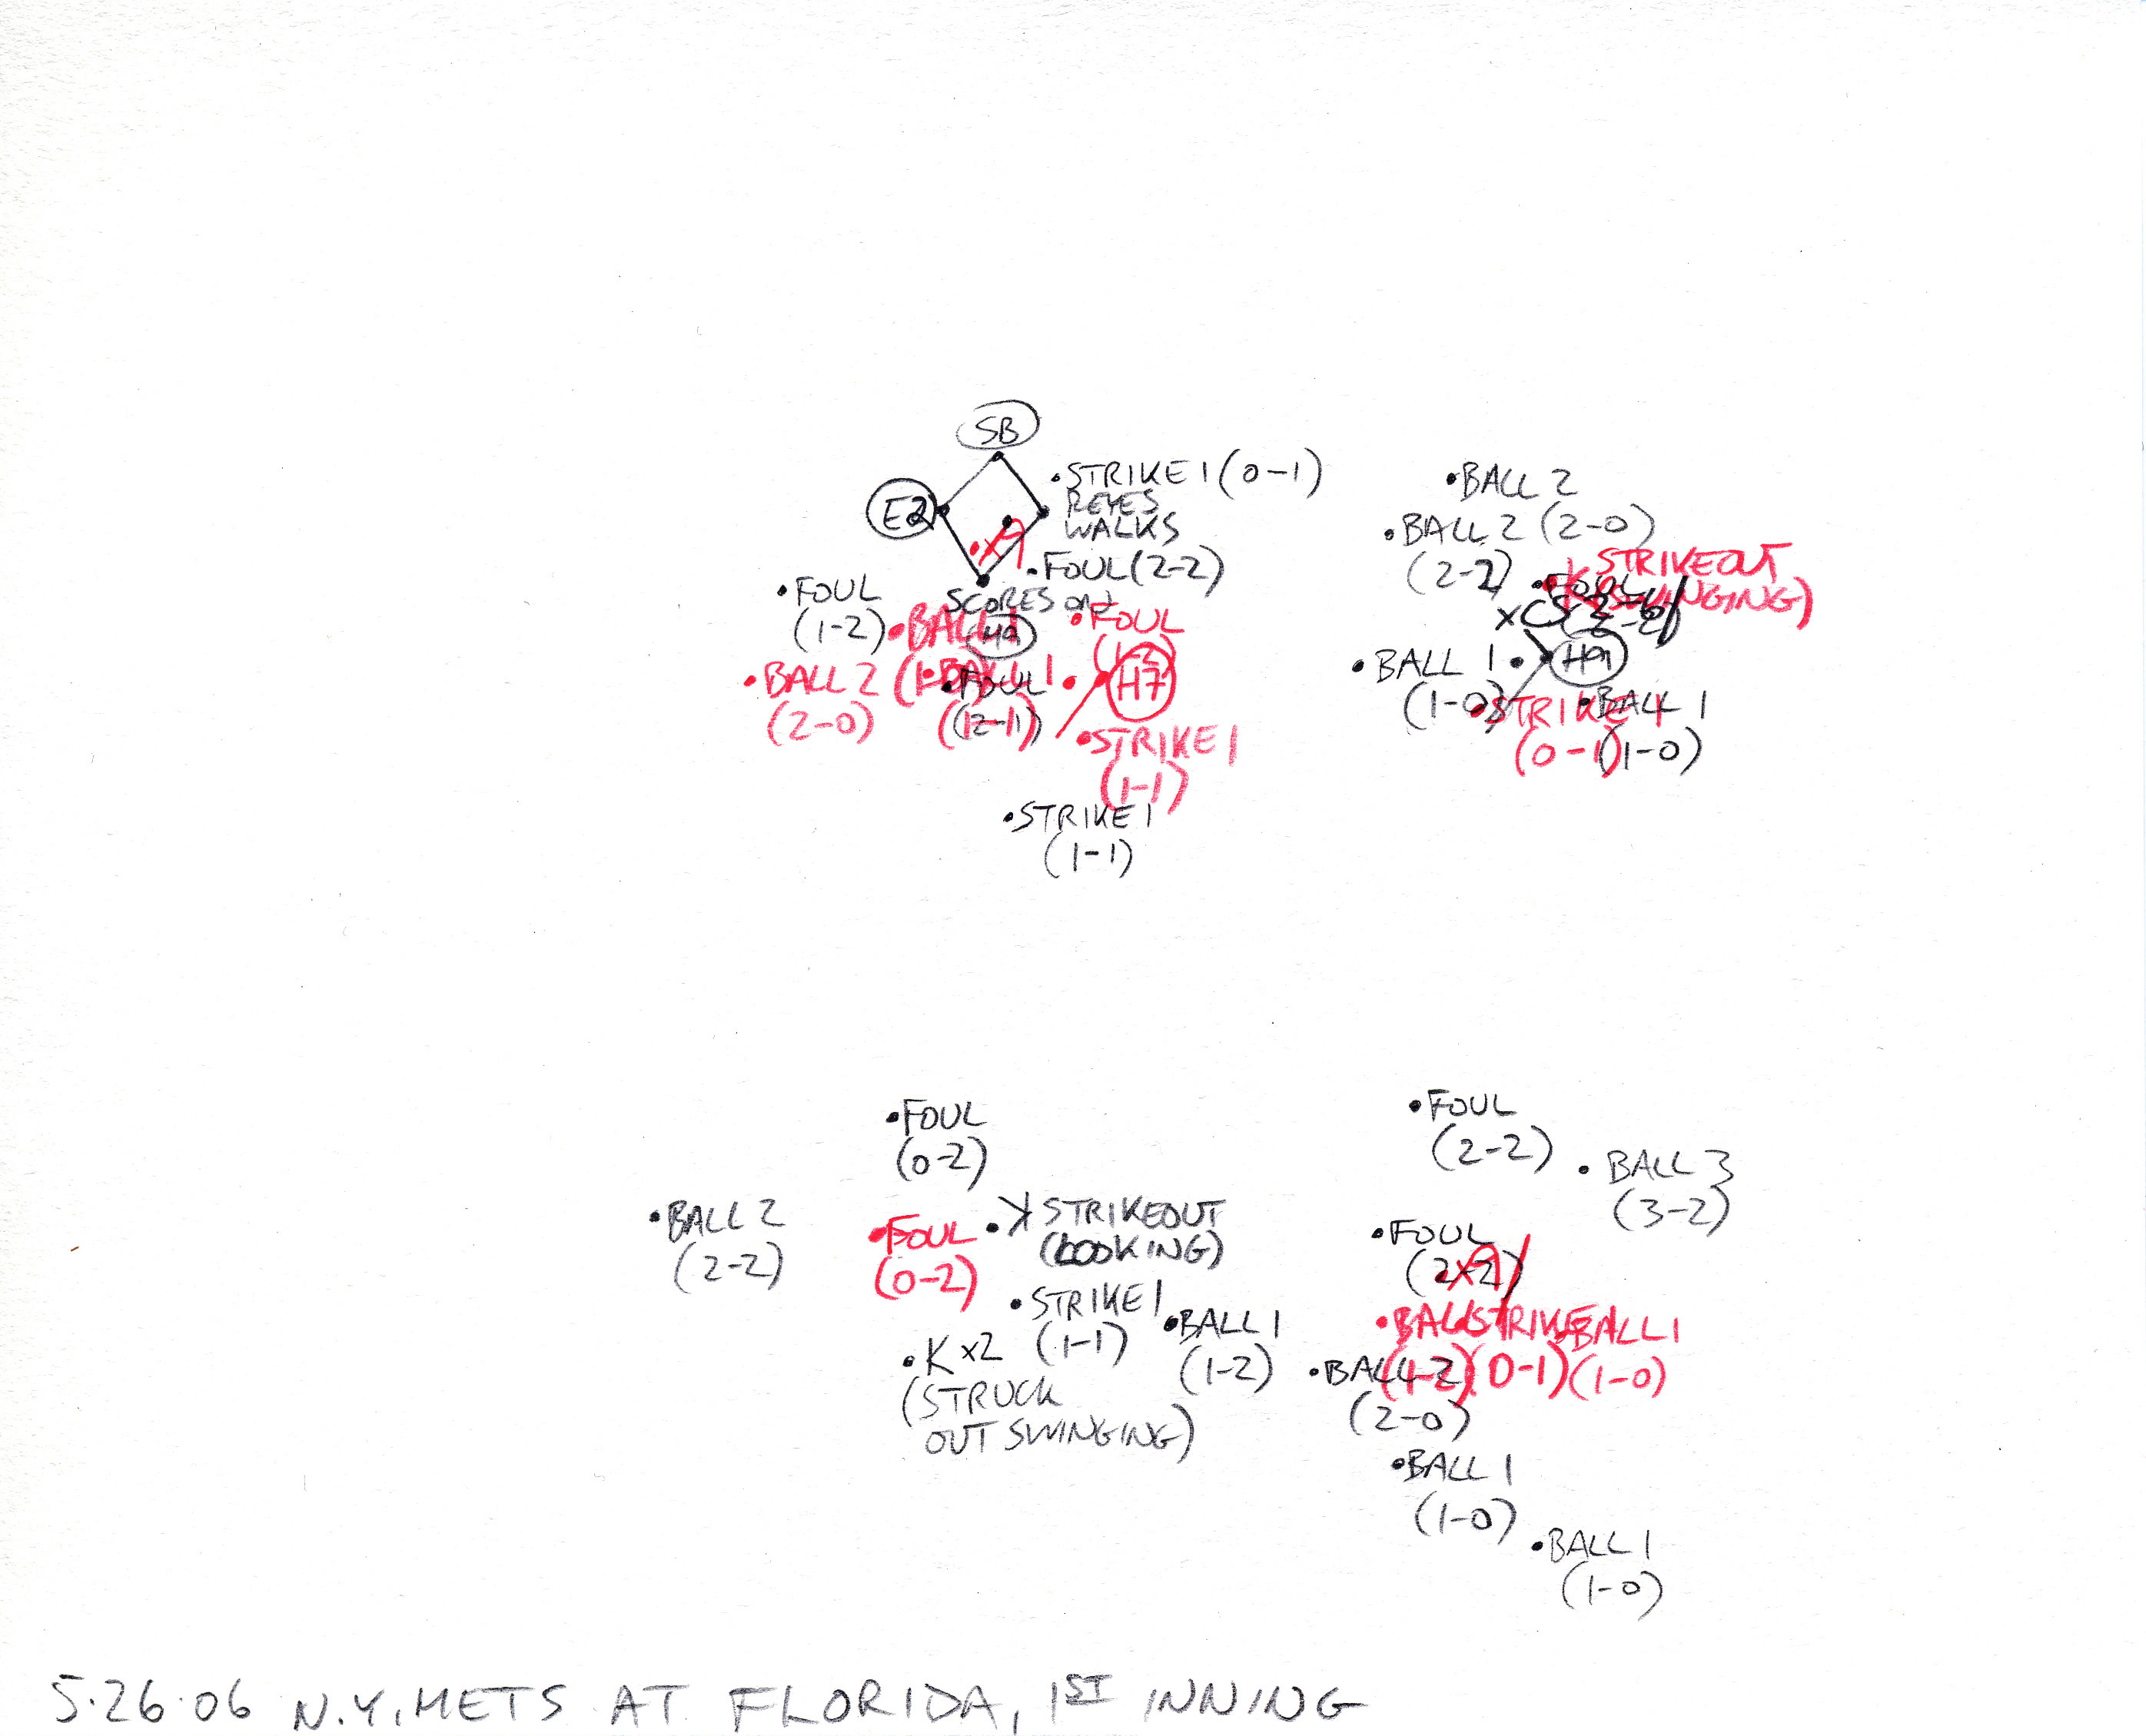 SB
E2
•STRIKE 1 (0-1)
REYES
WALKS
•FOUL (2-2)
SCORES ON
H9
•FOUL
(1-2)
•BALL 1
•BALL 2
(2-0)
•BALL 1
•FOUL
(2-1)
•FOUL
(1-2)
H7
•STRIKE 1
(1-1)
•STRIKE 1
(1-1)
x9
•BALL 2
•BALL 2 (2-0)
(2-2)
•FOUL
STRIKEOUT
(SWINGING)
xCS 2-6
•BALL 1
(1-0)
H9
•STRIKE 1
(0-1)
•BALL 1
(1-0)
•FOUL
(0-2)
•BALL 2
(2-2)
•FOUL
(0-2)
•K STRIKEOUT
(LOOKING)
•STRIKE 1
(1-1)
•BALL 1
(1-2)
•K x2
(STRUCK
OUT SWINGING)
•FOUL
(2-2)
•BALL 3
(3-2)
•FOUL
(2-2)
x9
•BALL
(1-2)
STRIKE 1
(0-1)
•BALL 1
(1-0)
•BALL 2
(2-0)
•BALL 1
(1-0)
•BALL 1
(1-0)
5.26.06 N.Y. METS AT FLORIDA, 1ST INNING